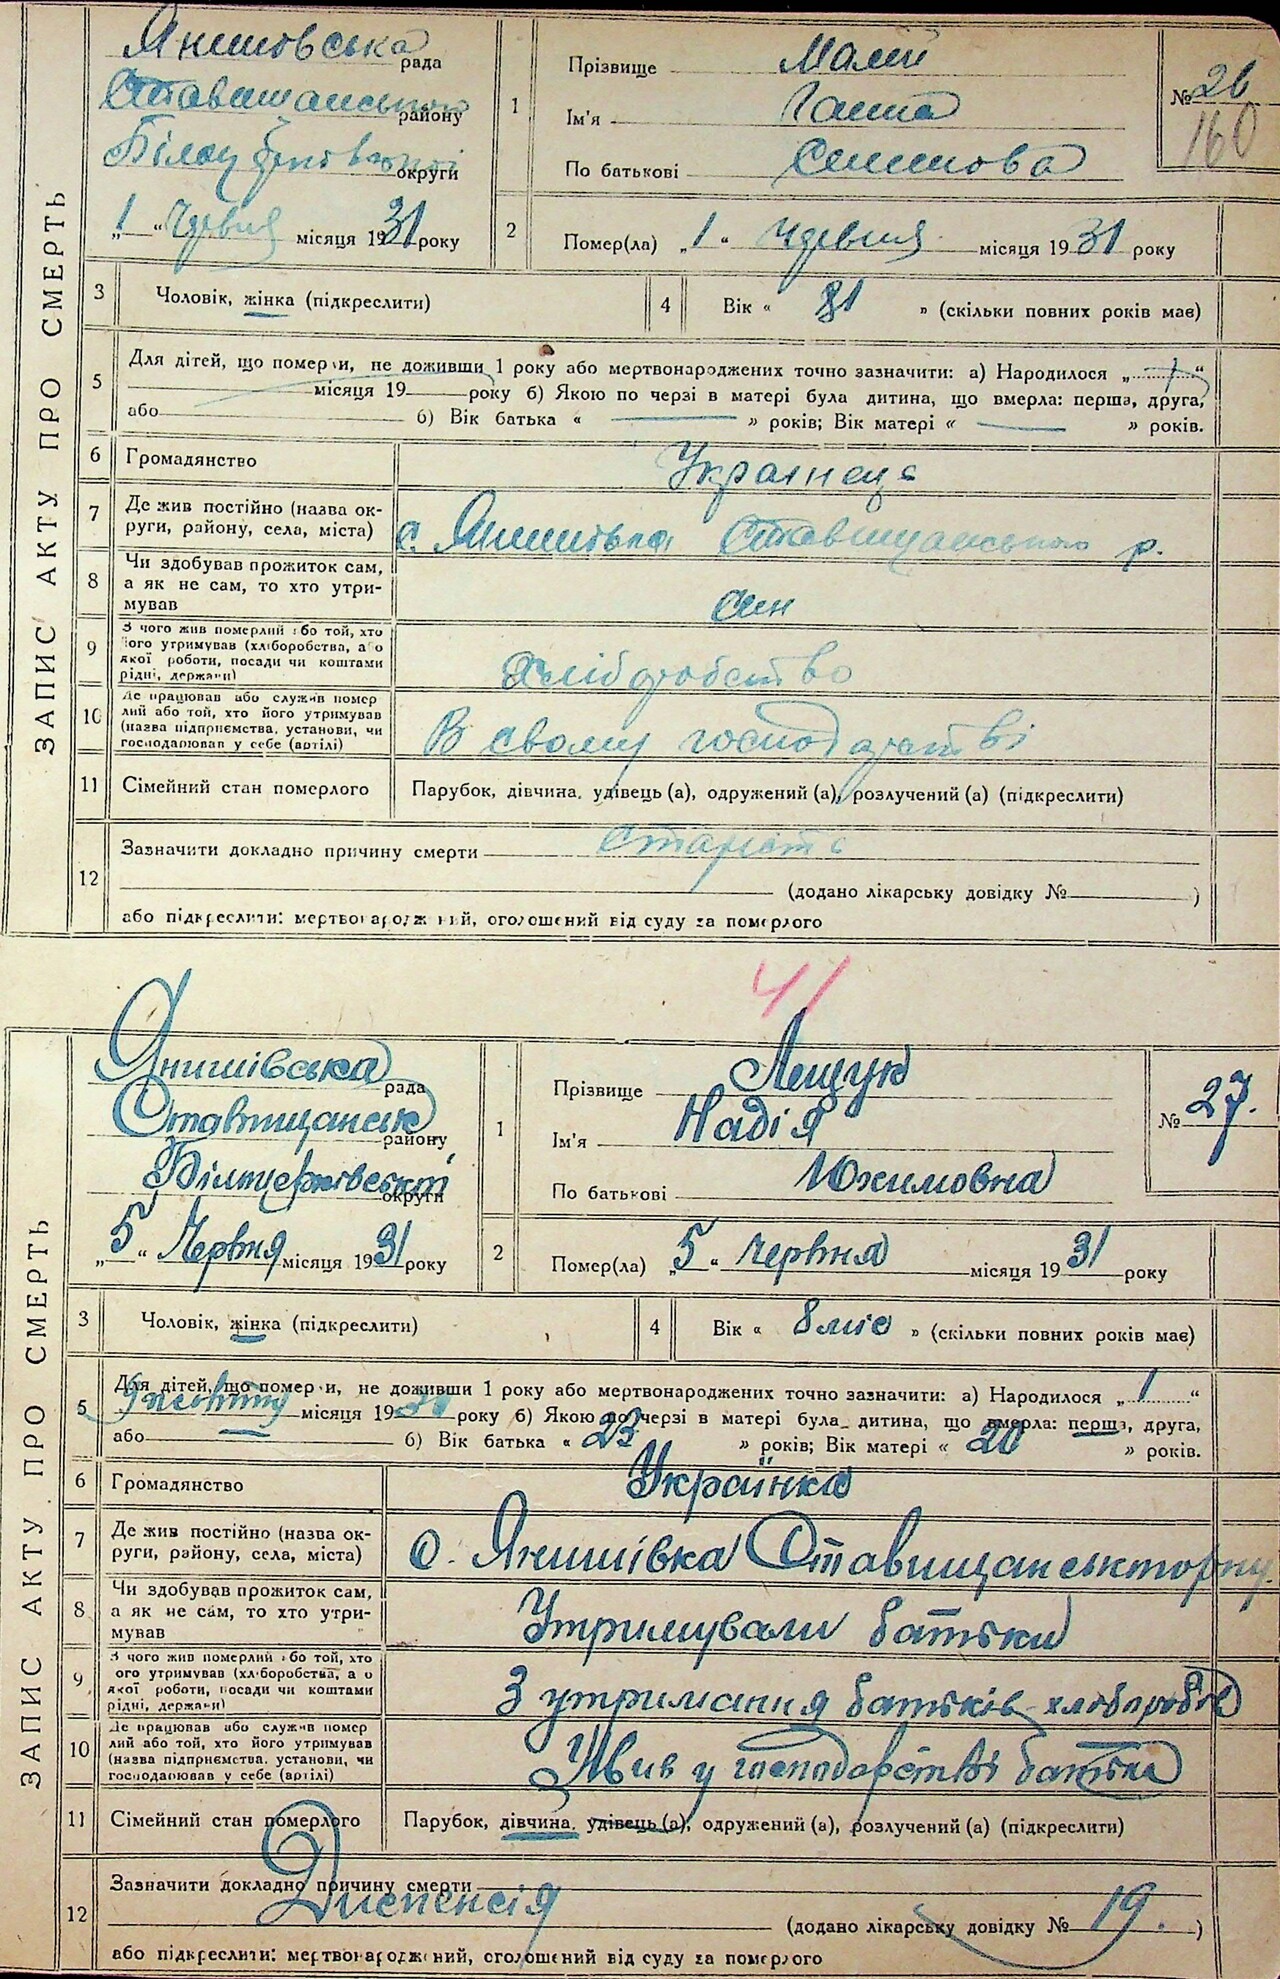 ЗАПИС АКТУ ПРО СМЕРТЬ
Янишовська рада
Ставищанського району
Білоцерківської округи
„1“ Червня місяця 1931 року
1
Прізвище Малий
Ім'я Ганна
По батькові Семенова
№ 26
160
2
Помер(ла) „1“ Червня місяця 1931 року
3 Чоловік, жінка (підкреслити)
4 Вік « 81 » (скільки повних років має)
5 Для дітей, що померли, не доживши 1 року або мертвонароджених точно зазначити: а) Народилося „ “
місяця 19 року б) Якою по черзі в матері була дитина, що вмерла: перша, друга,
або б) Вік батька « » років; Вік матері « » років.
6 Громадянство Українець
7 Де жив постійно (назва ок-
руги, району, села, міста) с. Янишівка Ставищанського р.
8 Чи здобував прожиток сам,
а як не сам, то хто утри-
мував син
9 З чого жив померлий або той, хто
його утримував (хліборобства, або
якої роботи, посади чи коштами
рідні, держави) хліборобство
10 Де працював або служив помер
лий або той, хто його утримував
(назва підприємства, установи, чи
господарював у себе (артілі) В свому господарстві
11 Сімейний стан померлого Парубок, дівчина, удівець (а), одружений (а), розлучений (а) (підкреслити)
12 Зазначити докладно причину смерти старість
(додано лікарську довідку № )
або підкреслити: мертвонароджений, оголошений від суду за померлого
41
ЗАПИС АКТУ ПРО СМЕРТЬ
Янишівська рада
Ставищанськ району
Білоцерківської округи
„5“ Червня місяця 1931 року
1
Прізвище Лещук
Ім'я Надія
По батькові Юхимовна
№ 27.
2
Помер(ла) „5“ Червня місяця 1931 року
3 Чоловік, жінка (підкреслити)
4 Вік « 8 міс » (скільки повних років має)
5 Для дітей, що померли, не доживши 1 року або мертвонароджених точно зазначити: а) Народилося „1“
Жовтня місяця 1930 року б) Якою по черзі в матері була дитина, що вмерла: перша, друга,
або б) Вік батька « 23 » років; Вік матері « 20 » років.
6 Громадянство Українка
7 Де жив постійно (назва ок-
руги, району, села, міста) с. Янишівка Ставищанського
8 Чи здобував прожиток сам,
а як не сам, то хто утри-
мував Утримували батьки
9 З чого жив померлий або той, хто
його утримував (хліборобства, або
якої роботи, посади чи коштами
рідні, держави) З утримання батьків-хліборобів
10 Де працював або служив помер
лий або той, хто його утримував
(назва підприємства, установи, чи
господарював у себе (артілі) Жив у господарстві батька
11 Сімейний стан померлого Парубок, дівчина, удівець (а), одружений (а), розлучений (а) (підкреслити)
12 Зазначити докладно причину смерти
Диспенсія (додано лікарську довідку № 19. )
або підкреслити: мертвонароджений, оголошений від суду за померлого